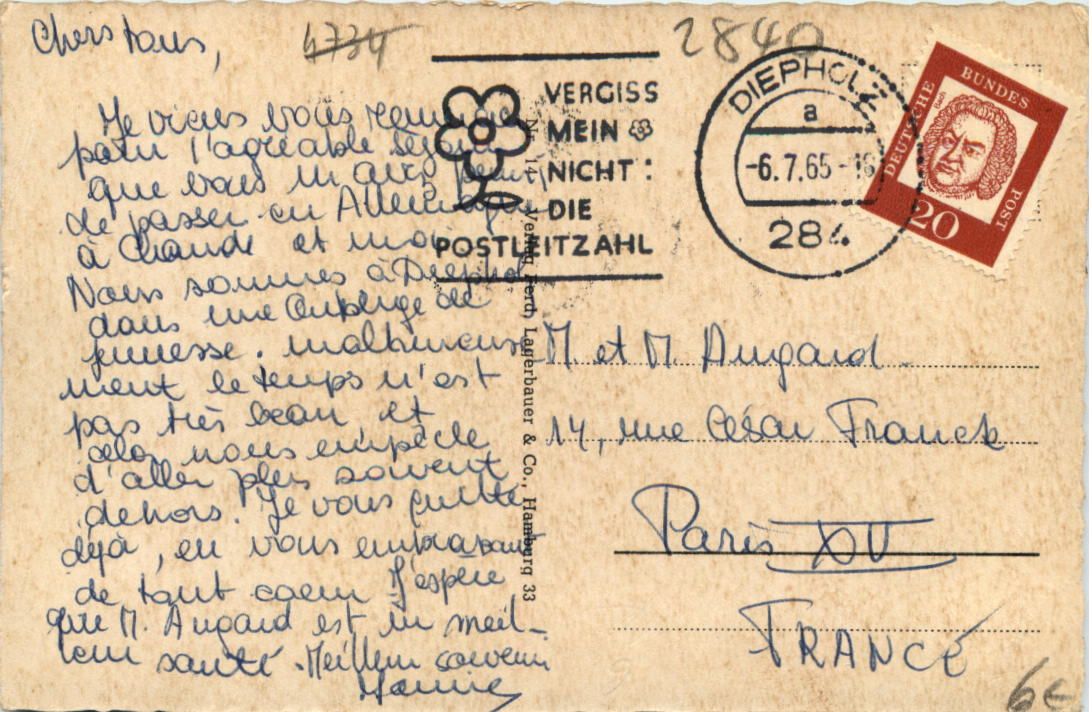 Chers tous,
4734
2840
Je viens vous remercie
pour l'agréable séjour
que vous m'avez permis
de passer en Allemagne
à Claude et moi.
Nous sommes à Diephol
dans une Auberge de
jeunesse. malheureuse
ment le temps n'est
pas très beau et
cela nous empêche
d'aller plus souvent
dehors. Je vous quitte
déjà, en vous embrassant
de tout coeur J'espère
que M. Augard est en meil-
leur santé. Meilleur souvenir
VERGISS
MEIN
NICHT:
DIE
POSTLEITZAHL
DIEPHOLZ
a
-6.7.65-16
284
DEUTSCHE BUNDES POST
Bach
20
Verlag Ferd. Lagerbauer & Co., Hamburg 33
M. et M. Augard
14, rue César Franck
Paris XV
FRANCE
6€